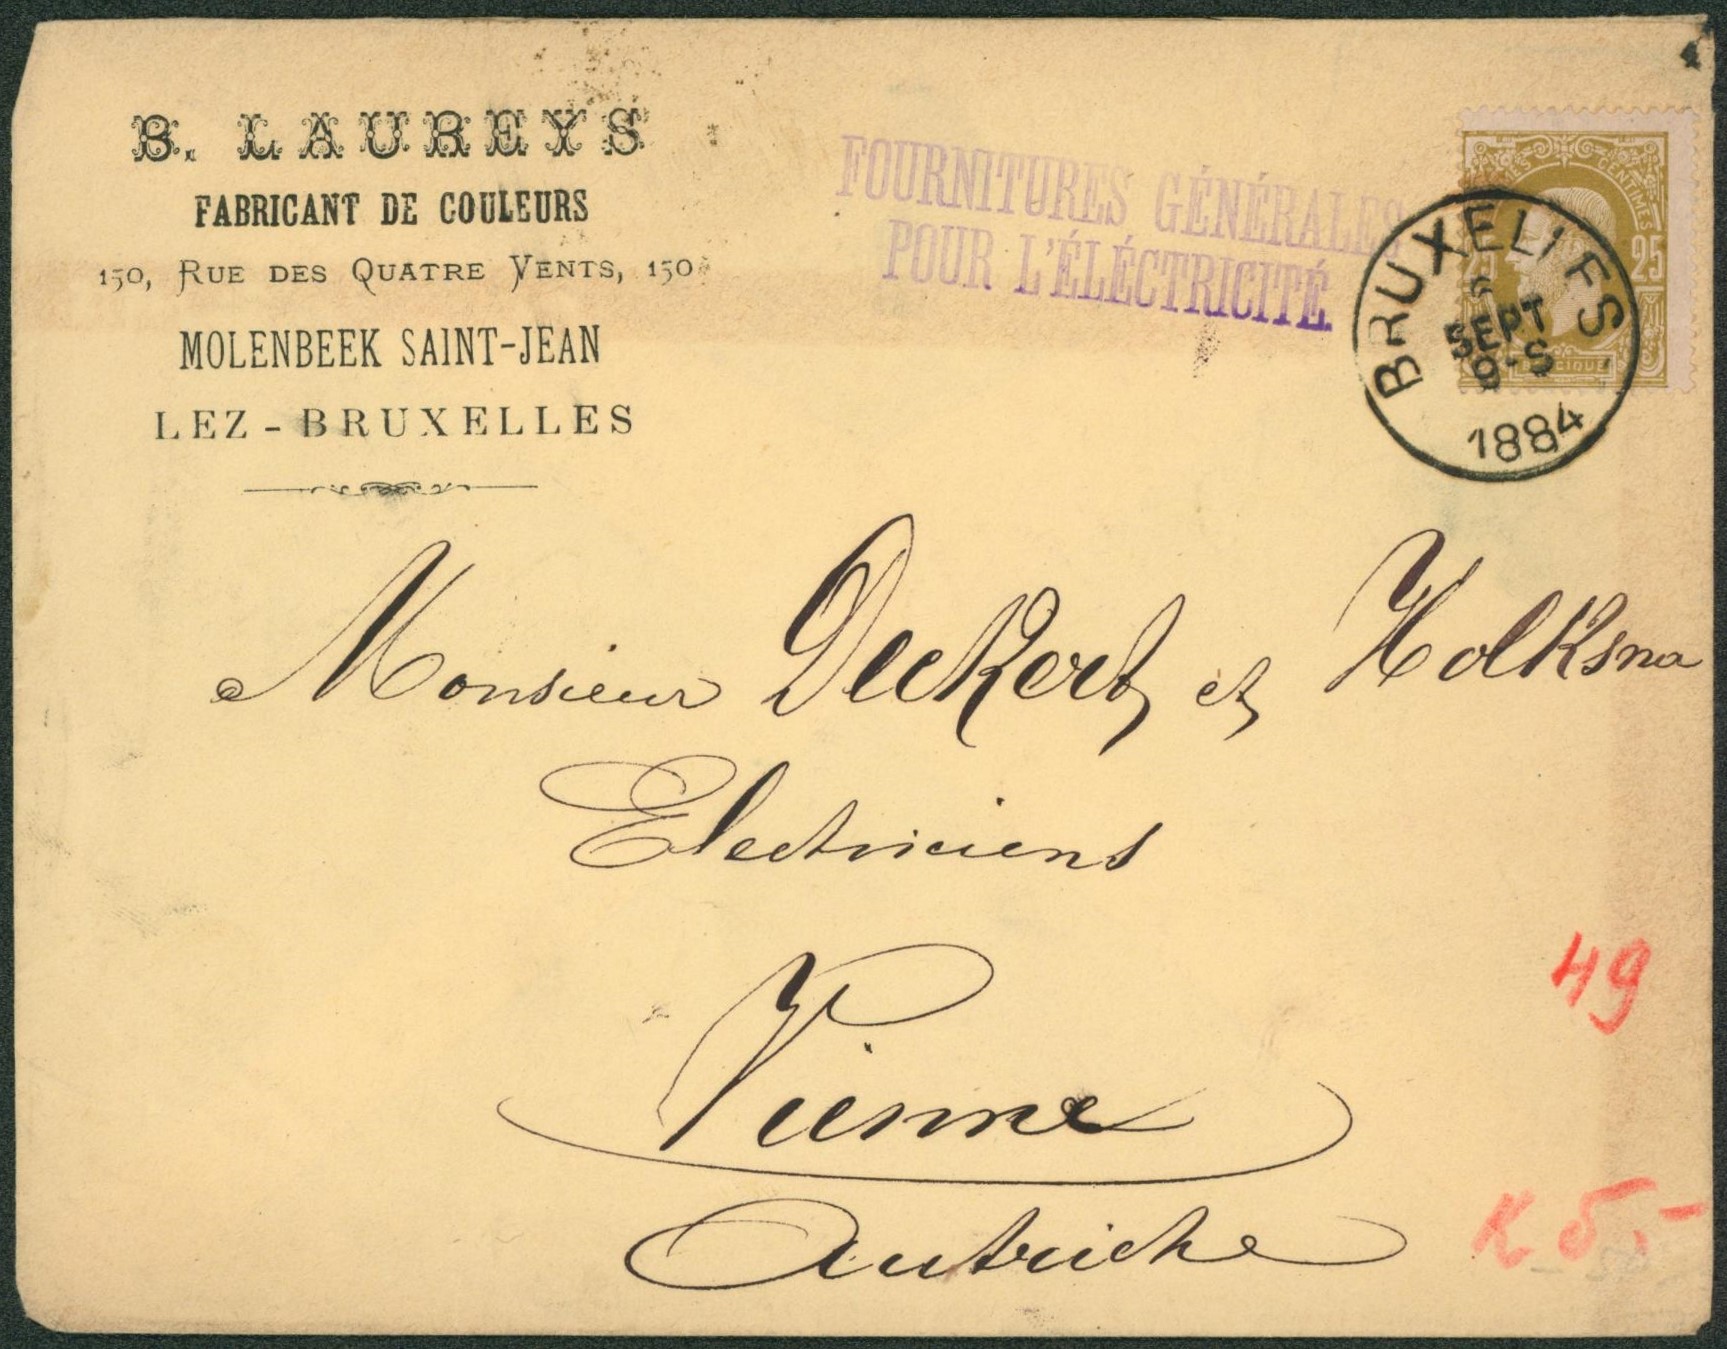 B. LAUREYS
FABRICANT DE COULEURS
150, RUE DES QUATRE VENTS, 150
MOLENBEEK SAINT-JEAN
LEZ-BRUXELLES
FOURNITURES GÉNÉRALES
POUR L'ÉLÉCTRICITÉ
CENTIMES
25 25
BELGIQUE
BRUXELLES
6
SEPT
9-S
1884
Monsieur Deckert et Holksma
Electriciens
Vienne
Autriche
49
K 5.-